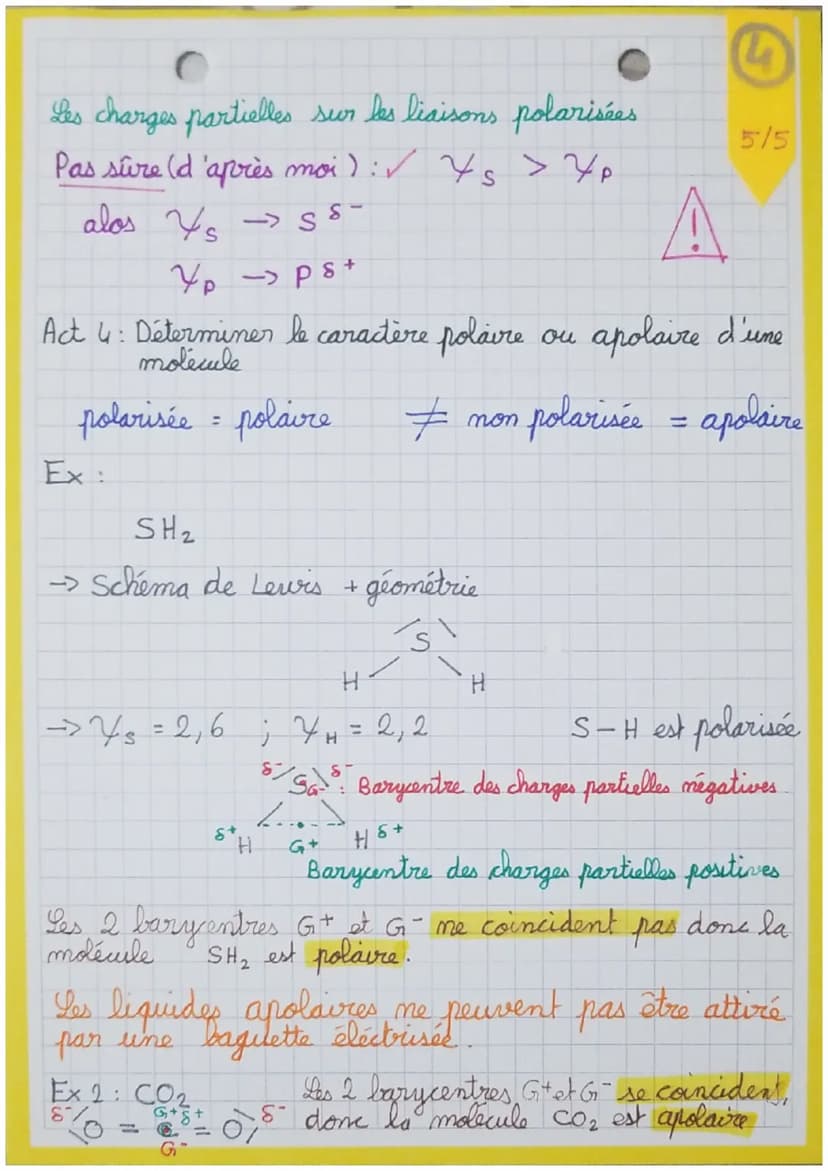 4
5/5
Les charges partielles sur les liaisons polarisées
Pas sûre (d'après moi) : ✓ χS > χP
alos χS → S δ-
!
χP → P δ+
Act 4 : Déterminer le caractère polaire ou apolaire d'une
molécule
polarisée = polaire ≠ non polarisée = apolaire
Ex :
SH2
→ Schéma de Lewis + géométrie
S
H H
→ χS = 2,6 ; χH = 2,2 S-H est polarisée
δ- S δ- G- : Barycentre des charges partielles négatives
δ+ H G+ H δ+
Barycentre des charges partielles positives
Les 2 barycentres G+ et G- ne coincident pas donc la
molécule SH2 est polaire.
Les liquides apolaires ne peuvent pas être attiré
par une baguette éléctrisée.
Ex 2 : CO2 Les 2 barycentres G+ et G- se coincident,
δ- O = C = O δ- donc la molécule CO2 est apolaire
G+ δ+
G-